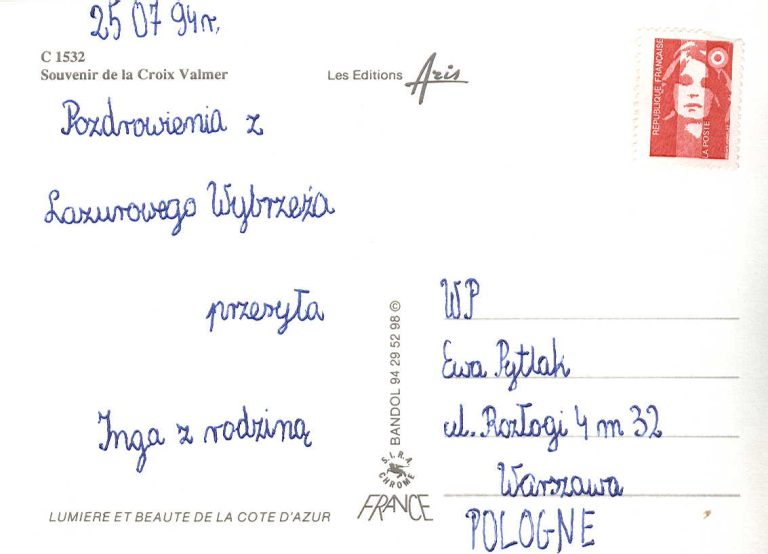 25 07 94r.
C 1532
Souvenir de la Croix Valmer
Les Editions Aris
REPUBLIQUE FRANÇAISE
LA POSTE
Pozdrowienia z
Lazurowego Wybrzeża
przesyła
Inga z rodziną
LUMIERE ET BEAUTE DE LA COTE D'AZUR
BANDOL 94 29 52 98 ©
S.I.R.A.
CHROME
FRANCE
WP
Ewa Pytlak
ul. Rozłogi 4 m 32
Warszawa
POLOGNE